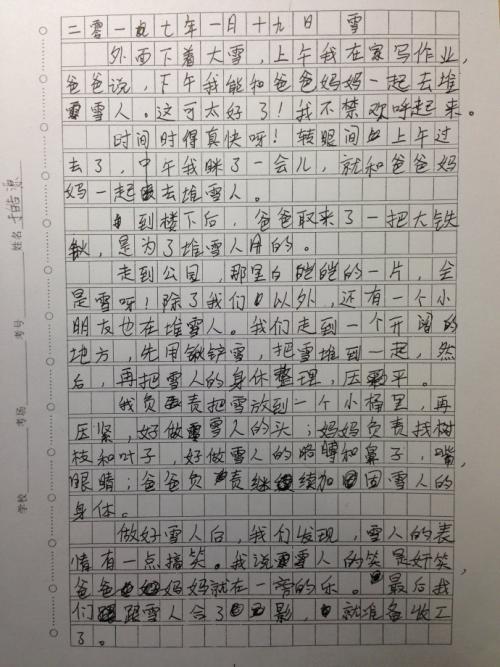 二零一九七年一月十九日 雪
外面下着大雪，上午我在家写作业，
爸爸说，下午我能和爸爸妈妈一起去堆
雪人。这可太好了！我不禁欢呼起来。
时间时得真快呀！转眼间上午过
去了，中午我眯了一会儿，就和爸爸妈
妈一起去堆雪人。
到楼下后，爸爸取来了一把大铁
锹，是为了堆雪人用的。
走到公园，那里白皑皑的一片，全
是雪呀！除了我们以外，还有一个小
朋友也在堆雪人。我们走到一个开阔的
地方，先用锹铲雪，把雪堆到一起，然
后，再把雪人的身体整理，压平。
我负责把雪放到一个小桶里，再
压紧，好做雪人的头；妈妈负责找树
枝和叶子，好做雪人的胳膊和鼻子，嘴，
眼睛；爸爸负责继续加固雪人的
身体。
做好雪人后，我们发现，雪人的表
情有一点搞笑。我说雪人的笑是奸笑，
爸爸妈妈就在一旁的乐。最后我
们跟雪人合了影，就准备收工
了。
学校 考场 考号 姓名